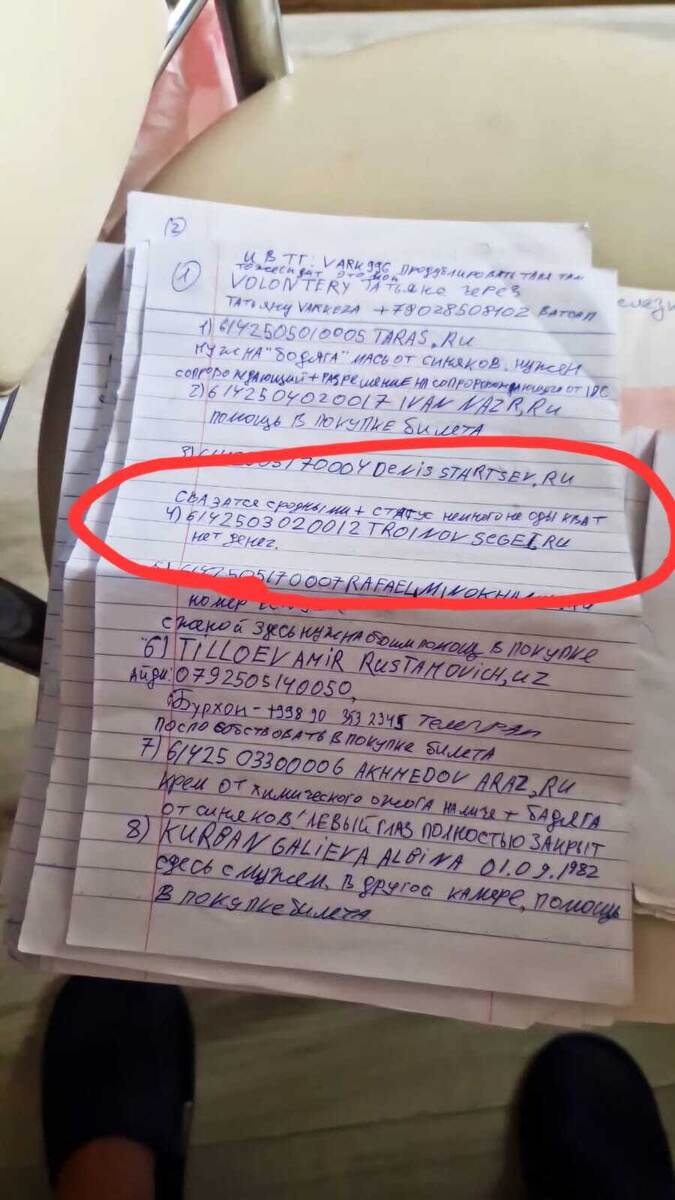 2
1
И В ТГ: VARK996 ПРОДУБЛИРОВАТЬ ТАМ ТАМ
ТОЖЕ СИДИТ ЭТО МОЙ
VOLONTERY ТАТЬЯНА ЧЕРЕЗ
ТАТЬЯНУ VARKEZA +79028508402 ВАТСАП
1) 6142505010005 TARAS, RU
НУЖНА "БОДЯГА" МАСЬ ОТ СИНЯКОВ. НУЖЕН
СОПРОРОЖДАЮЩИЙ + РАЗРЕШЕНИЕ НА СОПРОРОЖДАЮЩЕГО ОТ IDC
2) 6142504020017 IVAN NAZR, RU
ПОМОЩЬ В ПОКУПКЕ БИЛЕТА
3) 6142505170004 DENIS STARTSEV, RU
СВЯЗАТСЯ С РОДНЫМИ + СТАТУС НЕМНОГО НЕ АДЫКВАТ
4) 6142503020012 TROINOV SEGEI, RU
НЕТ ДЕНЕГ.
5) 6142505170007 RAFAEL
НОМЕР
С ЖАНОЙ ЗДЕСЬ НУЖНА БОИМ ПОМОЩ В ПОКУПКЕ
6) TILLOEV AMIR RUSTAMOVICH, UZ
АЙДИ: 0792505140050,
БУРХОН - +998 90 353 2345 ТЕЛЕГРАМ
ПОСПОСОБСТВОВАТЬ В ПОКУПКЕ БИЛЕТА
7) 61425 03300006 AKHMEDOV ARAZ, RU
КРЕМ ОТ ХИМИЧЕСКОГО ОЖОГА НА ЛИЦЕ + БАДЯГА
ОТ СИНЯКОВ, ЛЕВЫЙ ГЛАЗ ПОЛНОСТЬЮ ЗАКРЫТ
8) KURBANGALIEVA ALBINA 01.09.1982
ЗДЕСЬ С МУЖЕМ, В ДРУГОЙ КАМЕРЕ, ПОМОЩЬ
В ПОКУПКЕ БИЛЕТА